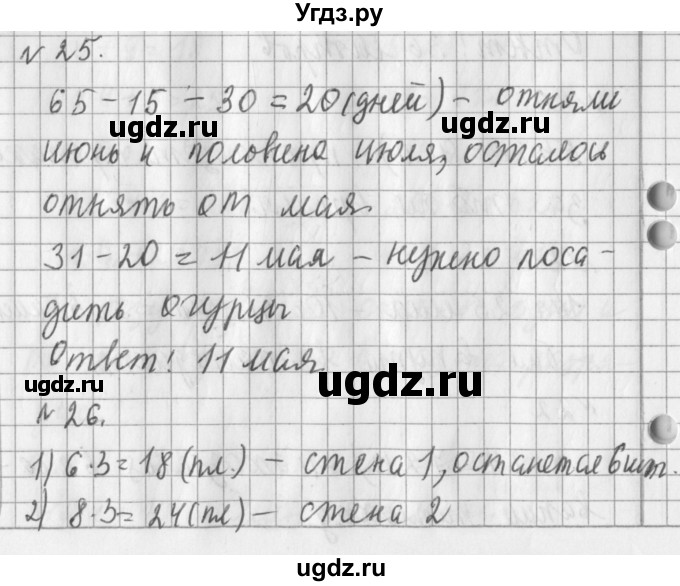 Угдз.ру
№ 25.
65 - 15 - 30 = 20 (дней) - отняли
ugdz.ru ugdz.ru
июнь и половина июля, осталось
отнять от мая.
31 - 20 = 11 мая - нужно поса-
дить огурцы
Ответ: 11 мая.
ugdz.ru ugdz.ru
№ 26.
1) 6·3 = 18 (пл.) - стена 1, останется 6 шт.
2) 8·3 = 24 (пл) - стена 2
ugdz.ru
ugdz.ru